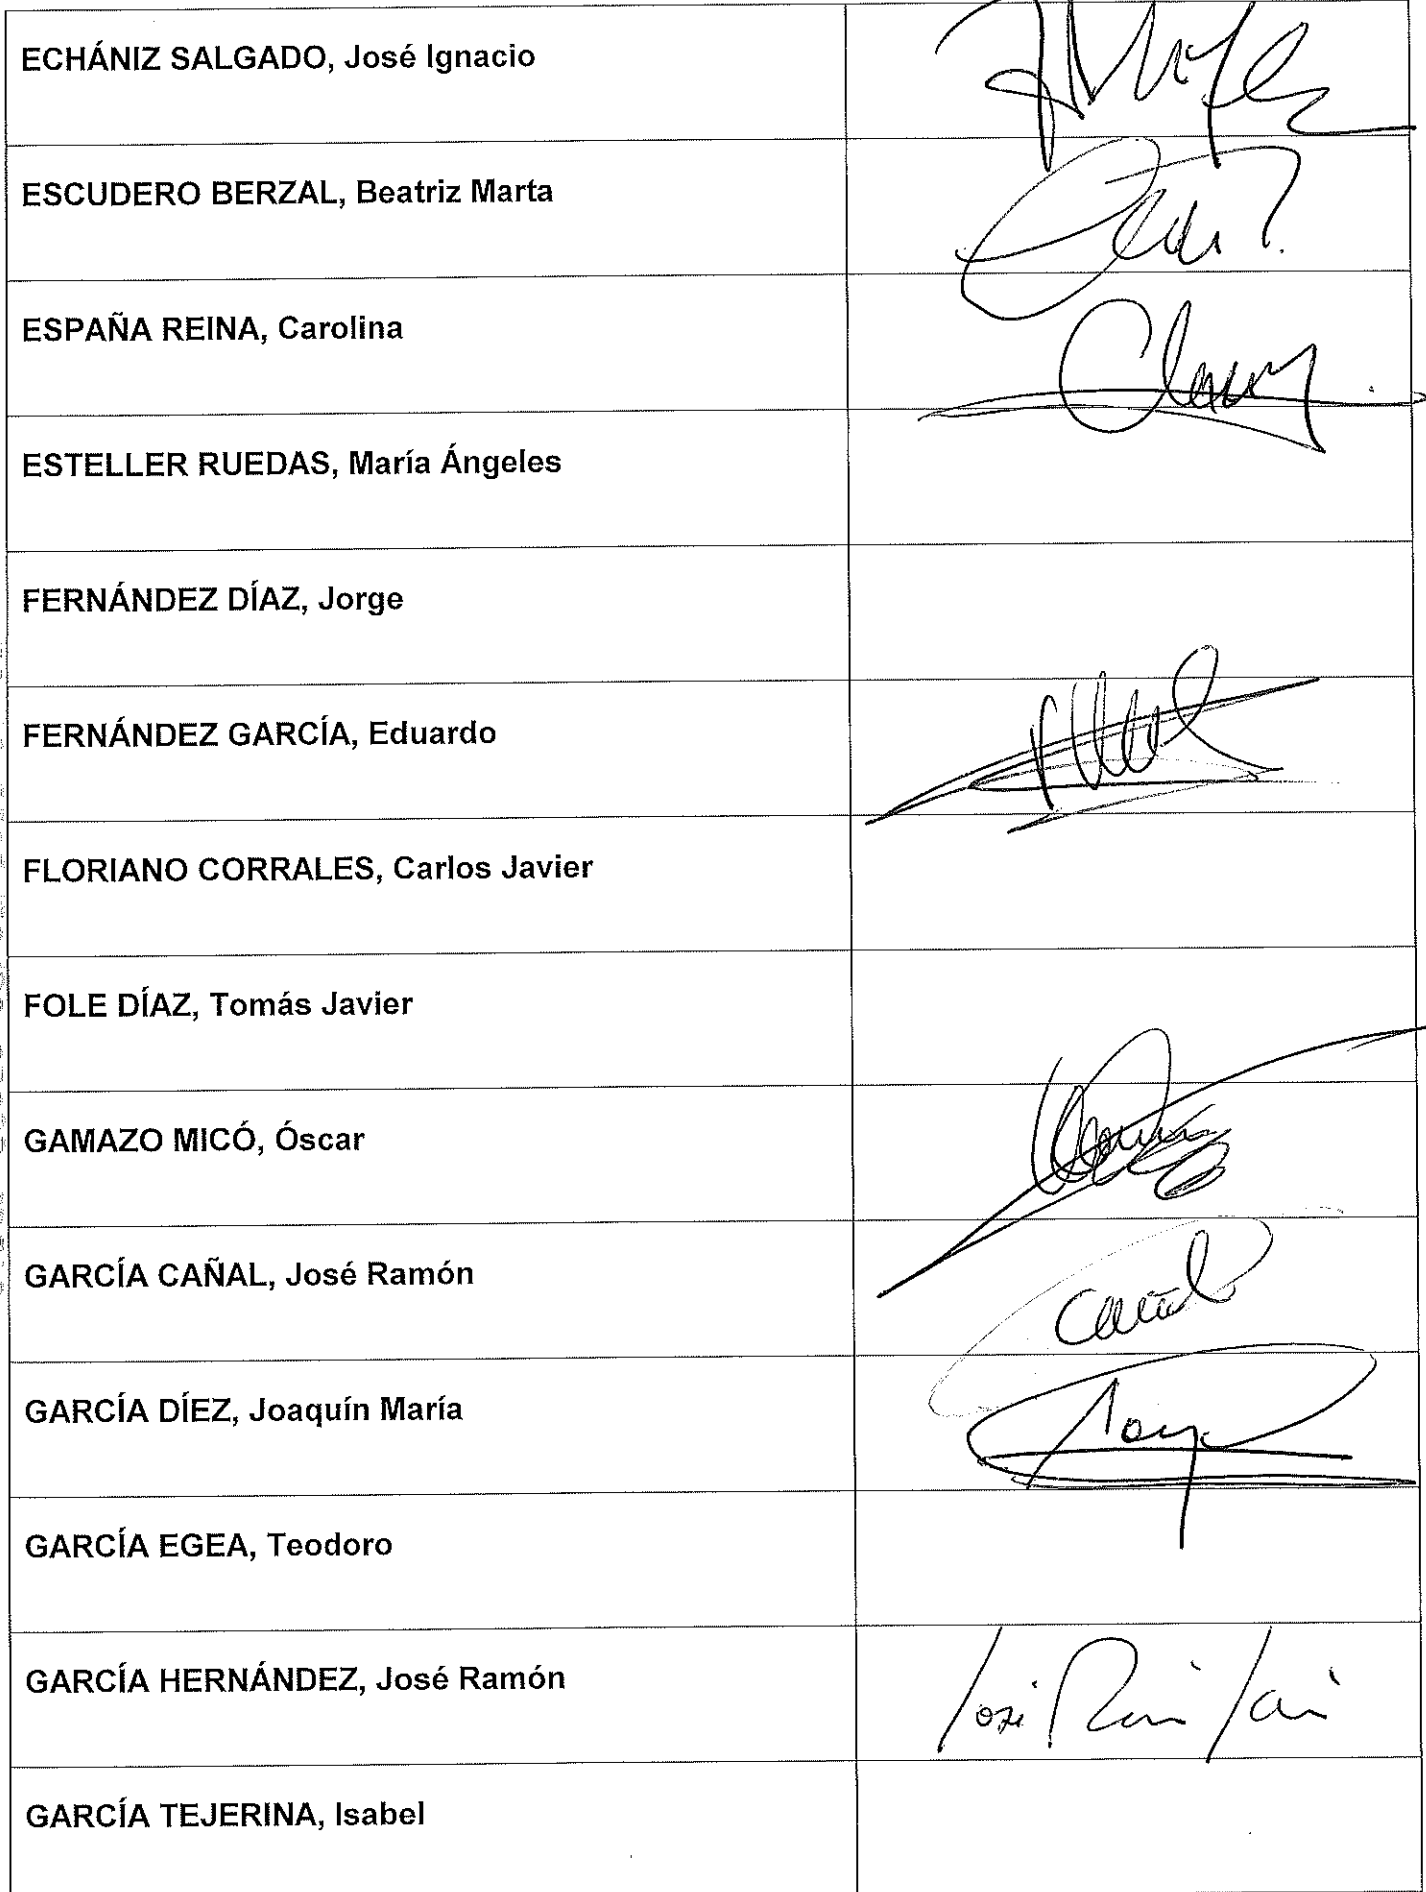 ECHÁNIZ SALGADO, José Ignacio
ESCUDERO BERZAL, Beatriz Marta
ESPAÑA REINA, Carolina
ESTELLER RUEDAS, María Ángeles
FERNÁNDEZ DÍAZ, Jorge
FERNÁNDEZ GARCÍA, Eduardo
FLORIANO CORRALES, Carlos Javier
FOLE DÍAZ, Tomás Javier
GAMAZO MICÓ, Óscar
GARCÍA CAÑAL, José Ramón
GARCÍA DÍEZ, Joaquín María
GARCÍA EGEA, Teodoro
GARCÍA HERNÁNDEZ, José Ramón
GARCÍA TEJERINA, Isabel